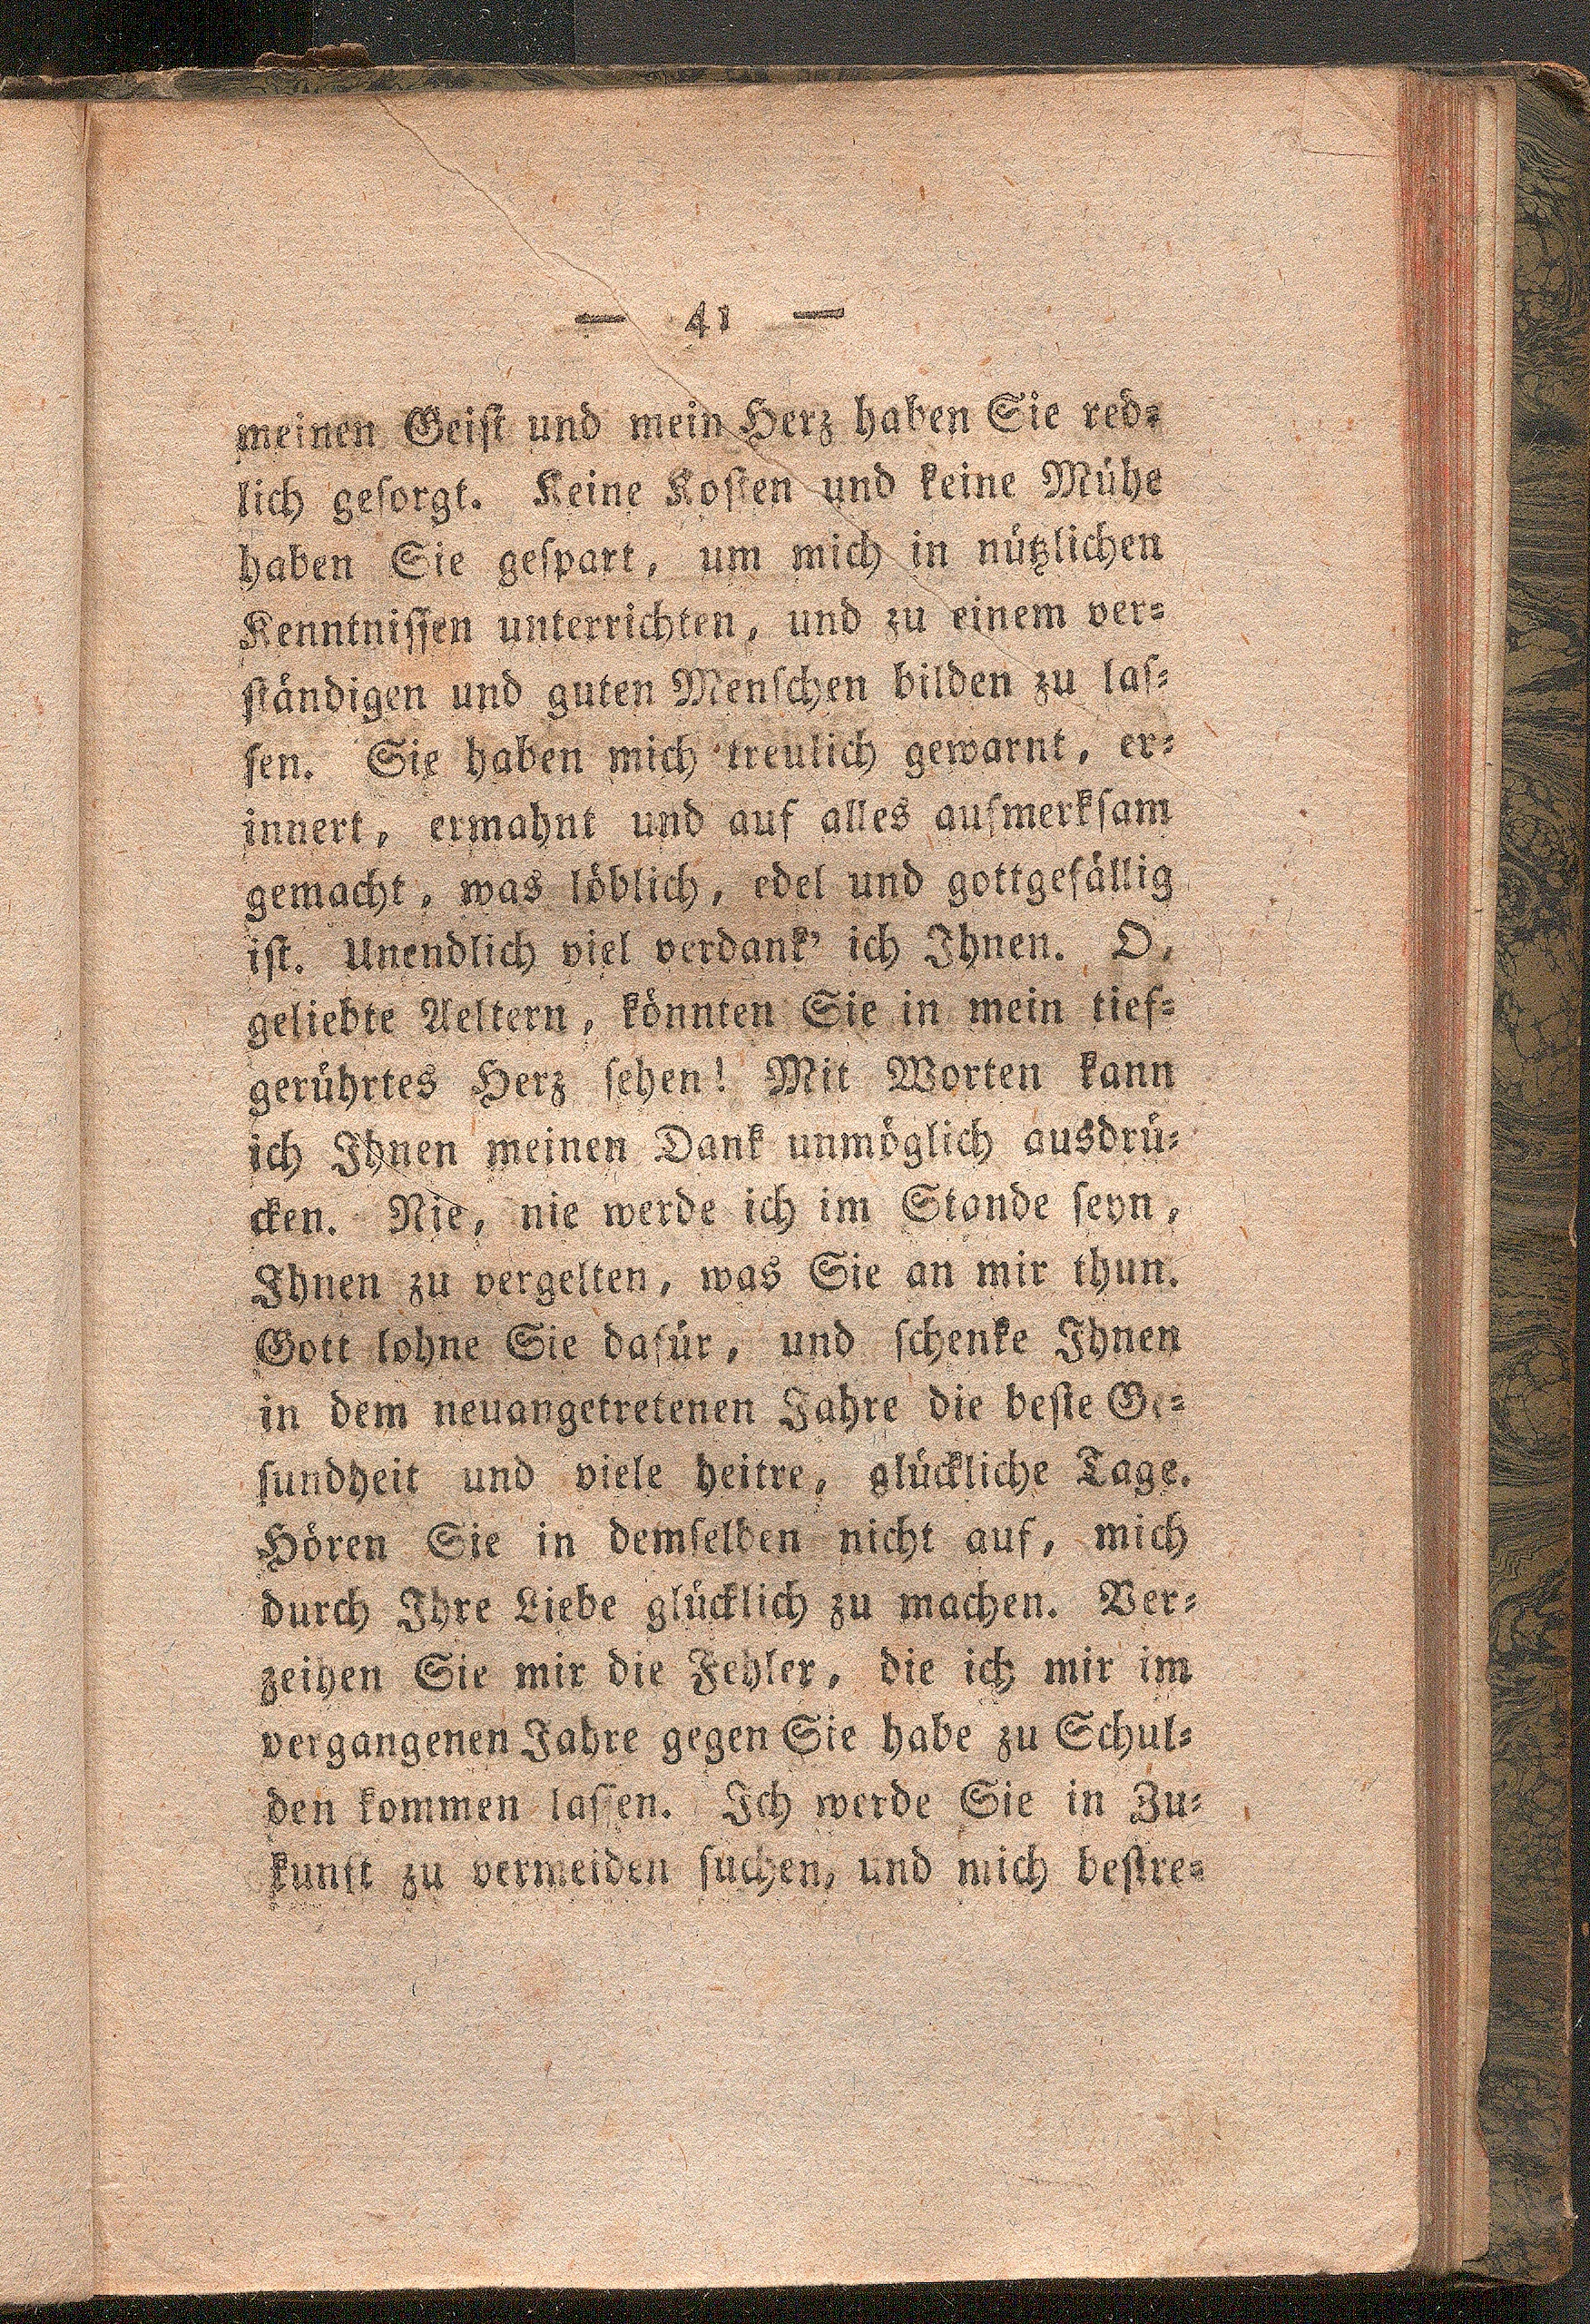 — 41 —
meinen Geiſt und mein Herz haben Sie red⸗
lich geſorgt. Keine Koſten und keine Mühe
haben Sie geſpart, um mich in nützlichen
Kenntniſſen unterrichten, und zu einem ver⸗
ſtändigen und guten Menſchen bilden zu laſ⸗
ſen. Sie haben mich treulich gewarnt, er⸗
innert, ermahnt und auf alles aufmerkſam
gemacht, was löblich, edel und gottgefällig
iſt. Unendlich viel verdank' ich Ihnen. O,
geliebte Aeltern, könnten Sie in mein tief⸗
gerührtes Herz ſehen! Mit Worten kann
ich Ihnen meinen Dank unmöglich ausdrü⸗
cken. Nie, nie werde ich im Stande ſeyn,
Ihnen zu vergelten, was Sie an mir thun.
Gott lohne Sie dafür, und ſchenke Ihnen
in dem neuangetretenen Jahre die beſte Ge⸗
ſundheit und viele heitre, glückliche Tage.
Hören Sie in demſelben nicht auf, mich
durch Ihre Liebe glücklich zu machen. Ver⸗
zeihen Sie mir die Fehler, die ich mir im
vergangenen Jahre gegen Sie habe zu Schul⸗
den kommen laſſen. Ich werde Sie in Zu⸗
kunft zu vermeiden ſuchen, und mich beſtre⸗